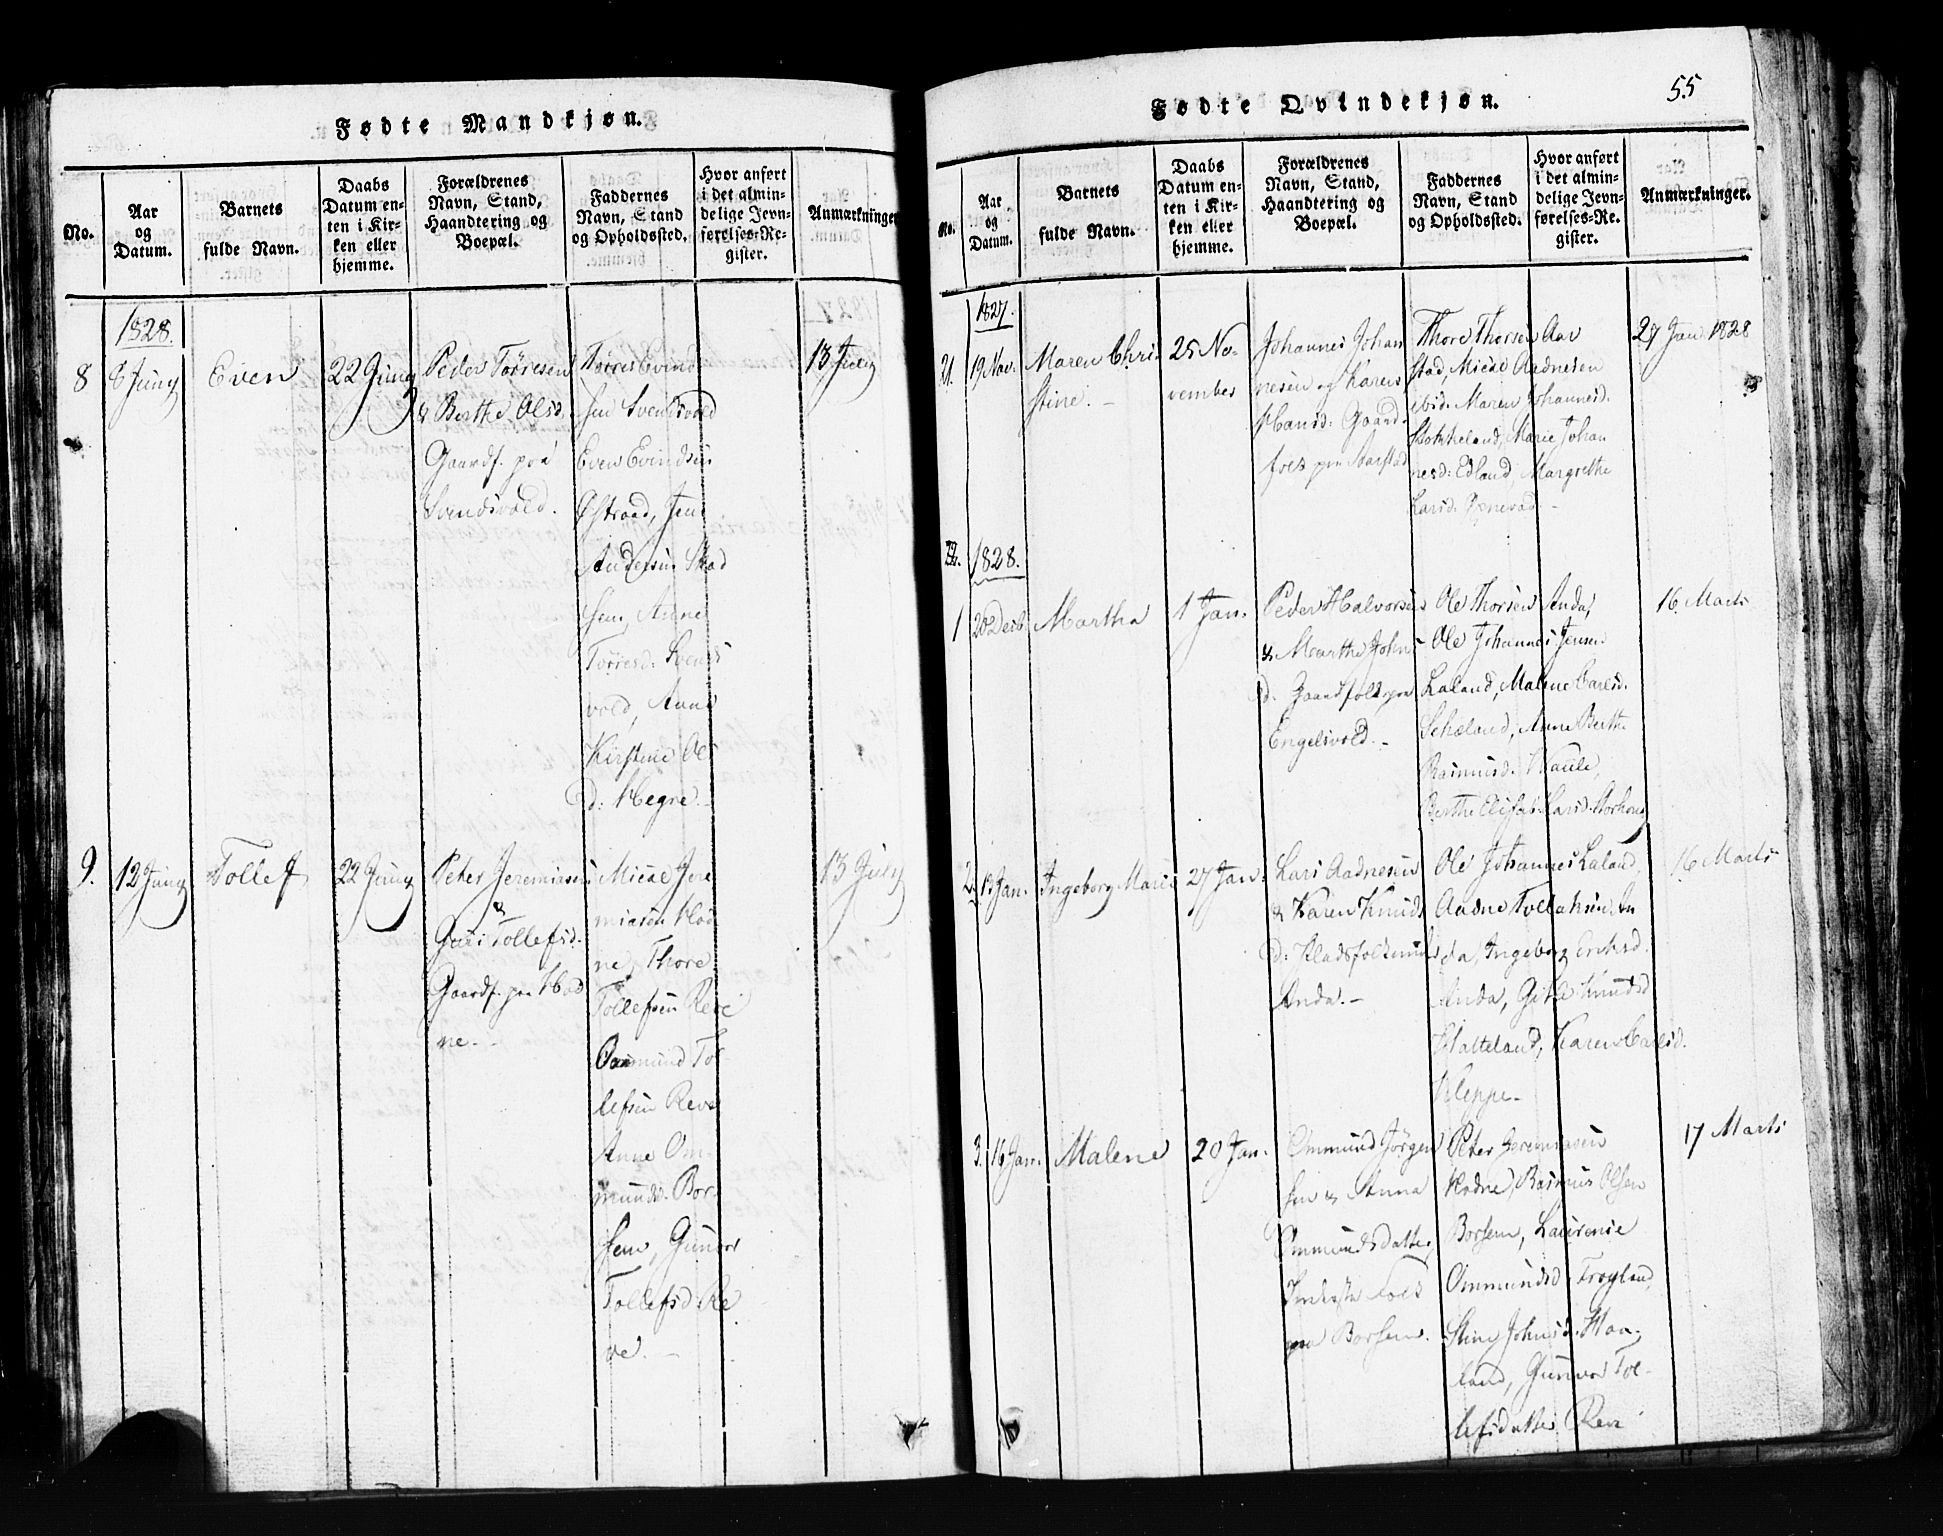 Fødte Mandkjøn.
No.
Aar
og
Datum.
Barnets
fulde Navn.
Daabs
Datum en-
ten i Kir-
ken eller
hjemme.
Forældrenes
Navn, Stand,
Haandtering og
Boepæl.
Faddernes
Navn, Stand
og Opholdssted.
Hvor anført
i det almin-
delige Jevn-
førelses-Re-
gister.
Anmærkninger
1828.
8
8 Juny
Even
22 Juny
Peder Torresen
& Berthe Olsd.
Gaardf. paa
Svendsvold.
Torres Evind
sen Svendsvold
Even Evindsen
Østraad, Jens
Andersen Skad
sem, Anne
Torresd. Svends
vold, Anne
Kirstine Ols
d: Hegre.
13 July
9.
12 Juny
Tollef
22 Juny
Peter Jeremiasen
&
Guri Tollefsd.
Gaardf. paa Hod
ne.
Micael Jere
miasen Hod
ne, Thore
Tollefsen Reve
Ommund Tol
lefsen Reve
Anne Om-
mundsd. Bor-
sem, Gunvor
Tollefsd: Re
ve.
13 July
Fødte Qvindekjøn.
55
No.
Aar
og
Datum.
Barnets
fulde Navn.
Daabs
Datum en-
ten i Kir-
ken eller
hjemme.
Forældrenes
Navn, Stand,
Haandtering og
Boepæl.
Faddernes
Navn, Stand
og Opholdssted.
Hvor anført
i det almin-
delige Jevn-
førelses-Re-
gister.
Anmærkninger.
1827.
21.
19 Nov.
Maren Chri-
stine.
25 No-
vember
Johannes Johan
nesen og Karen
Hansd: Gaard-
folk paa Aarstad
Thore Thorsen Aar
stad, Micael Aadnesen
ibid. Maren Johannesd.
Stokkeland, Marie Johan
nesd: Edland, Margrethe
Larsd.
27 Jan. 1828
22.
1828.
1
20 Decb.
Martha
1 Jan.
Peder Halvorsen
& Marthe Johns
d. Gaardfolk paa
Engelsvold.
Ole Thorsen Anda,
Ole Johannes Jensen
Laland, Malene Carlsd.
Schæland, Anne Berthe
Rasmusd.
Berthe Elisab. Larsd. Storhoug
16 Marts
2.
13 Jan.
Ingeborg Marie
27 Jan.
Lars Aadnesen
& Karen Knuds
d: Pladsfolk under
Anda.
Ole Johannes Laland,
Aadne Tollaksen An
da, Ingeborg Erichsd.
Anda, Gitle Knudsd
Hatteland, Karen Carlsd.
Kleppe
16 Marts
3.
16 Jan.
Malene
20 Jan.
Ommund Jørgen
sen & Anna
Ommundsdatter,
Inderste Folk
paa Borsem.
Peter Jeremiasen
Hodne, Rasmus Olsen
Borsem, Laurense
Ommundsd. Frøyland,
Stine Johnsd. Haa-
land, Gunvor Tol-
lefsdatter Reve
17 Marts